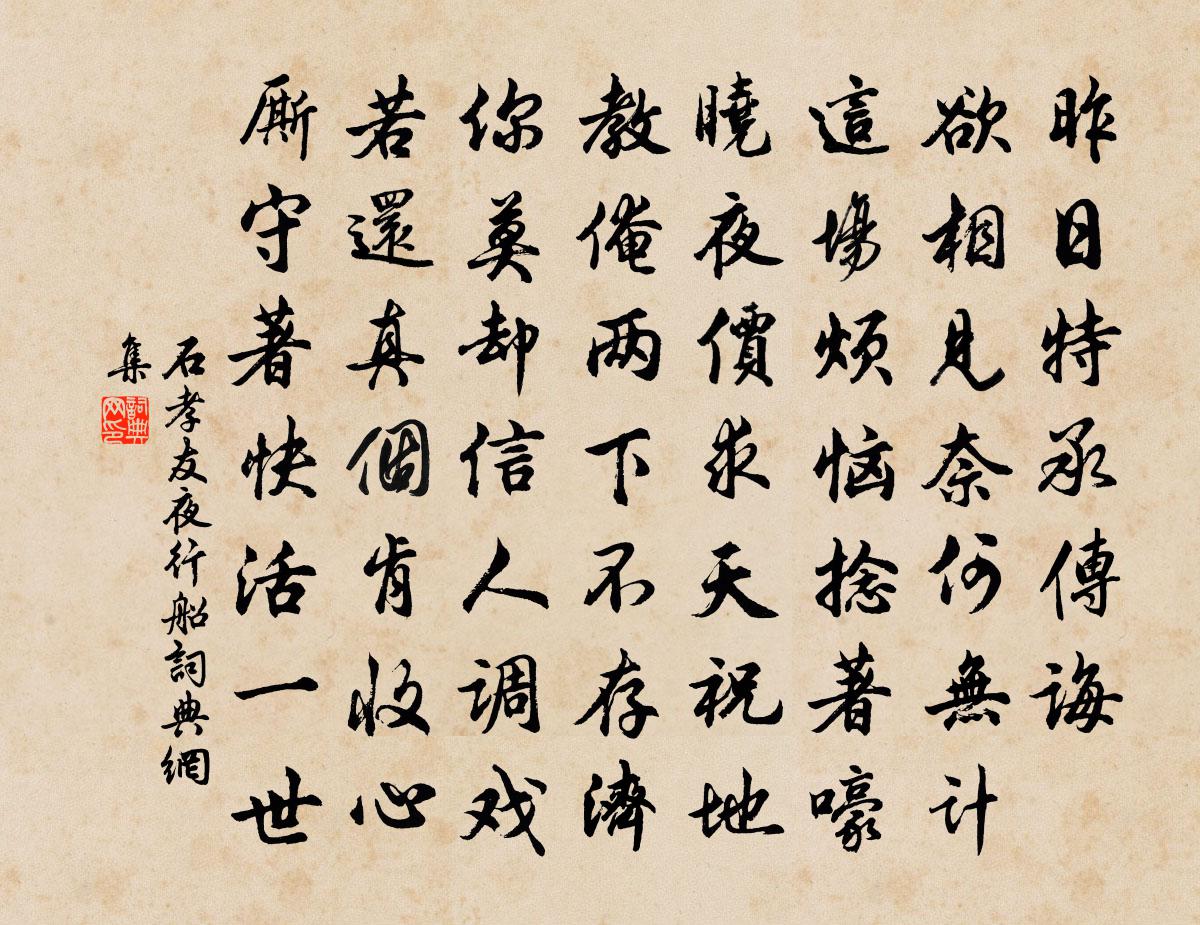 昨日特承傳誨
欲相見奈何無計
這場煩恼捻著嚎
曉夜價求天祝地
教俺两下不存濟
你莫却信人调戏
若還真個肯收心
厮守著快活一世
石孝友夜行船詞典網
集
詞典
网印